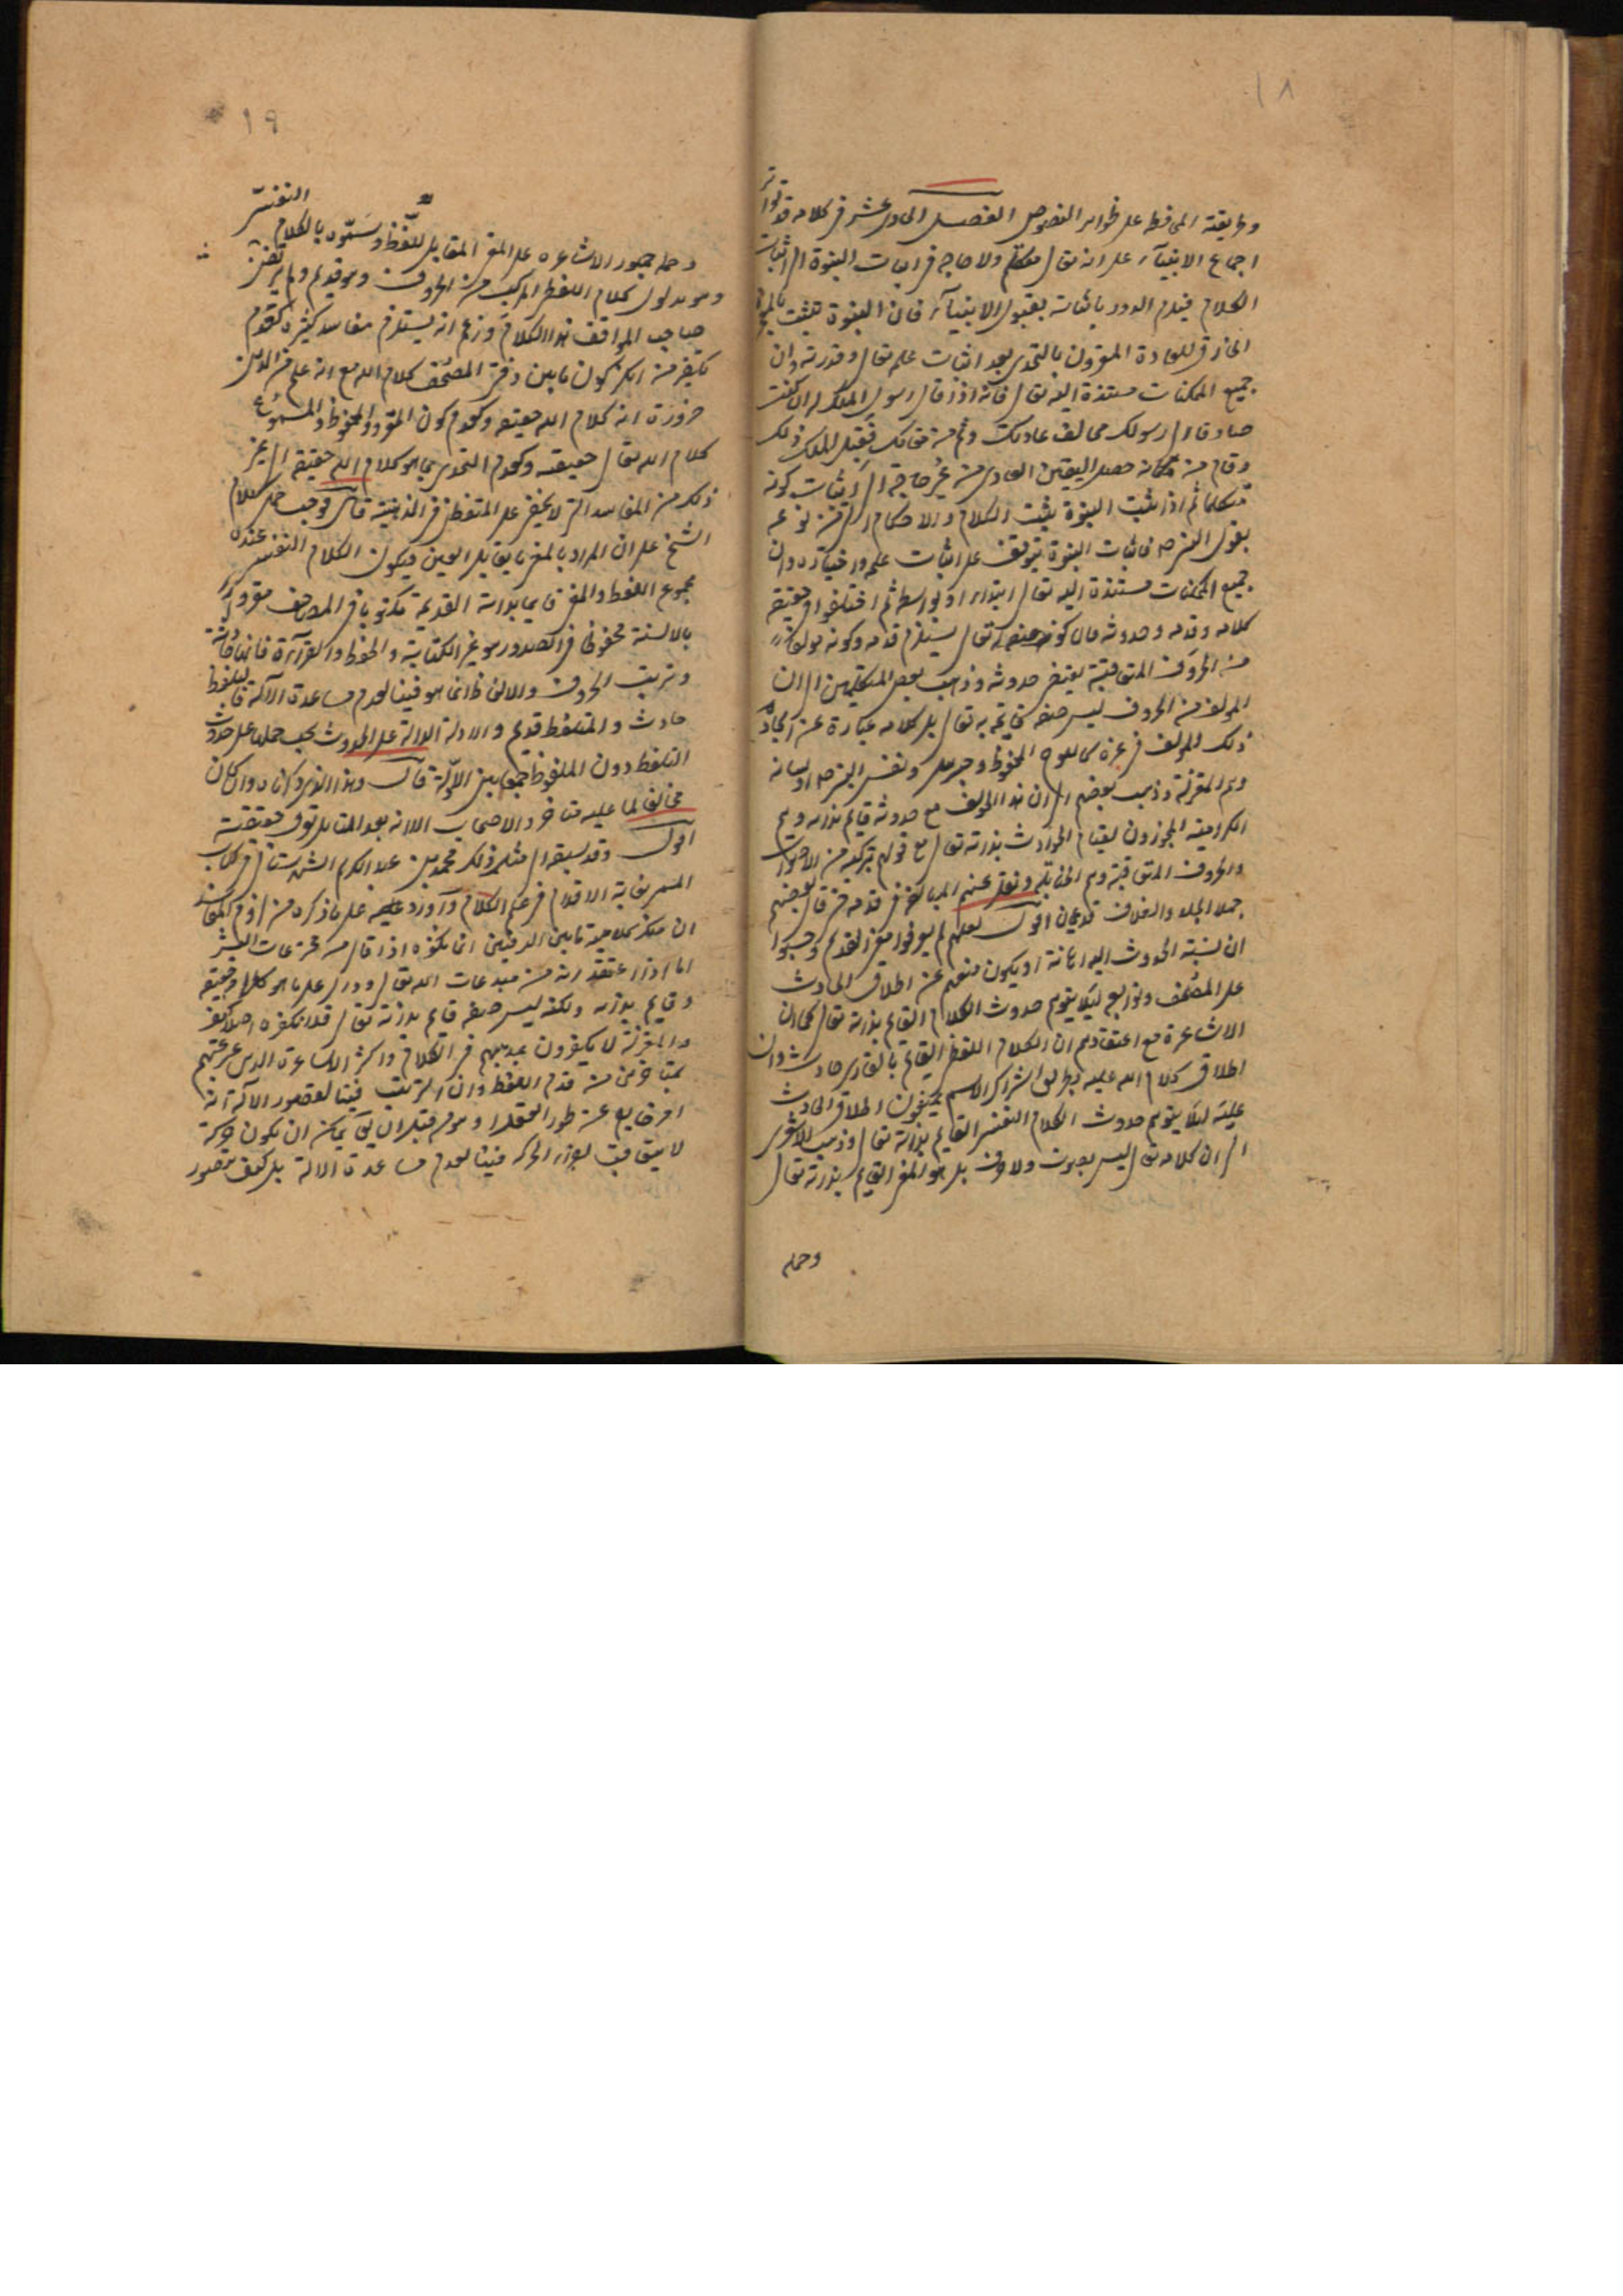 ١٨
وطريقته المحافظة على ظواهر النصوص الفصل الحادي عشر في كلامه قد تواتر
اجماع الانبيآء على انه تعالى متكلم ولا حاجة في اثبات النبوة الى اثبات
الكلام فيلزم الدور باثباته بقبول الانبيآء فان النبوة تثبت بالمعجزة
الخارق للعادة المقرون بالتحدي بعد اثبات علمه تعالى وقدرته وان
جميع الممكنات مستندة اليه تعالى فانه اذا قال رسول الملك له ان كنت
صادقا في رسولك مخالف عادتك وقم من مقامك فيقبل الملك ذلك
وقام من مكانه حصل اليقين العادي من غير حاجة الى اثبات كونه
متكلما ثم اذا ثبت النبوة يثبت الكلام والاحكام
بقول النبي فاثبات النبوة يتوقف على اثبات علمه واختياره وان
جميع الممكنات مستندة اليه تعالى ابتداء او بواسطة ثم اختلفوا في حقيقة
كلامه وقدمه وحدوثه فان كونه صفة له تعالى يستلزم قدمه وكونه مؤلفا
من الحروف المتعاقبة يقتضي حدوثه وذهب بعض المتكلمين الى ان
المؤلف من الحروف ليس صفة قائمة به تعالى بل كلامه عبارة عن ايجاد
ذلك المؤلف في غيره كاللوح المحفوظ وجبرئيل ونفس النبي او لسانه
وهم المعتزلة وذهب بعضهم الى ان هذا المؤلف مع حدوثه قايم بذاته وهم
الكرامية المجوزون لقيام الحوادث بذاته تعالى مع قولهم بتركبه من الاصوات
والحروف المتعاقبة وهم الحنابلة ونقل عنهم المبالغة في قدمه حتى قال بعضهم
جهلا الجلد والغلاف قديمان اقول لعلهم لم يعرفوا معنى القدم وحسبوا
ان نسبة الحدوث اليه اهانة او يكون منعهم عن اطلاق الحادث
على المصحف وتوابعه لئلا يتوهم حدوث الكلام القائم بذاته تعالى كما ان
الاشاعرة مع اعتقادهم ان الكلام اللفظي القائم بالقارئ حادث وان
اطلاق كلام الله عليه بطريق اشتراك الاسم يمنعون اطلاق الحادث
عليه لئلا يتوهم حدوث الكلام النفسي القايم بذاته تعالى وذهب الاشعري
الى ان كلامه تعالى ليس بصوت ولا حرف بل هو المعنى القايم بذاته تعالى
وحمله
١٩
وحمله جمهور الاشاعرة على المعنى المقابل للفظ وسمّوه بالكلام النفسيّ
وهو مدلول كلام اللفظي المركب من الحروف وهو قديم ولم يرتض
صاحب المواقف هذا الكلام وزعم انه يستلزم مفاسد كثيرة كعدم
تكفير من انكر كون ما بين دفتي المصحف كلام الله مع انه علم من الدين
ضرورة انه كلام الله حقيقة وكعدم كون المقروء والمحفوظ والمسموع
كلام الله تعالى حقيقة وكعدم التحدي بما هو كلام الله حقيقة الى غير
ذلك من المفاسد التي لا يخفى على المتفطن في الذهنية قال فوجب حمل كلام
الشيخ على ان المراد بالمعنى ما يقابل العين فيكون الكلام النفسي عنده
مجموع اللفظ والمعنى قايما بذاته القديمة مكتوبا في المصاحف مقروءا
بالالسنة محفوظا في الصدور وهو غير الكتابة والحفظ والقرآءة فانها حادثة
وترتيب الحروف والالفاظ انما هو فينا لعدم مساعدة الآلة فالتلفظ
حادث والمتلفظ قديم والادلة الدالة على الحدوث يجب حملها على حدوث
التلفظ دون الملفوظ جمعا بين الادلّة قال وهذا الذي ذكرناه وان كان
مخالفا لما عليه متاخروا الاصحاب الا انه بعد التامل تعرف حقيقته
اقول وقد سبقه الى مثل ذلك محمد بن عبد الكريم الشهرستاني في كتاب
المسمى نهاية الاقدام في علم الكلام واورد عليه على ما ذكره من لزوم المفاسد
ان منكر كلامية ما بين الدفتين انما نكفره اذا قال من مخترعات البشر
اما اذا اعتقد انه من مبدعات الله تعالى ودال على ما هو كلام حقيقة
وقايم بذاته ولكنه ليس صفة قايم بذاته تعالى فلا نكفره اصلا كيف
والمعتزلة لا يكفرون بمذهبهم في الكلام واكثر الاشاعرة
يتحاشون من قدم اللفظ وان الترتيب فينا لقصور الآلة انه
امر خارج عن طور العقل وهو من قبيل ان يمكن ان يكون حركة
لا يتعاقب اجزاء الحركة فينا لعدم مساعدة الالة بل كيف يتصور